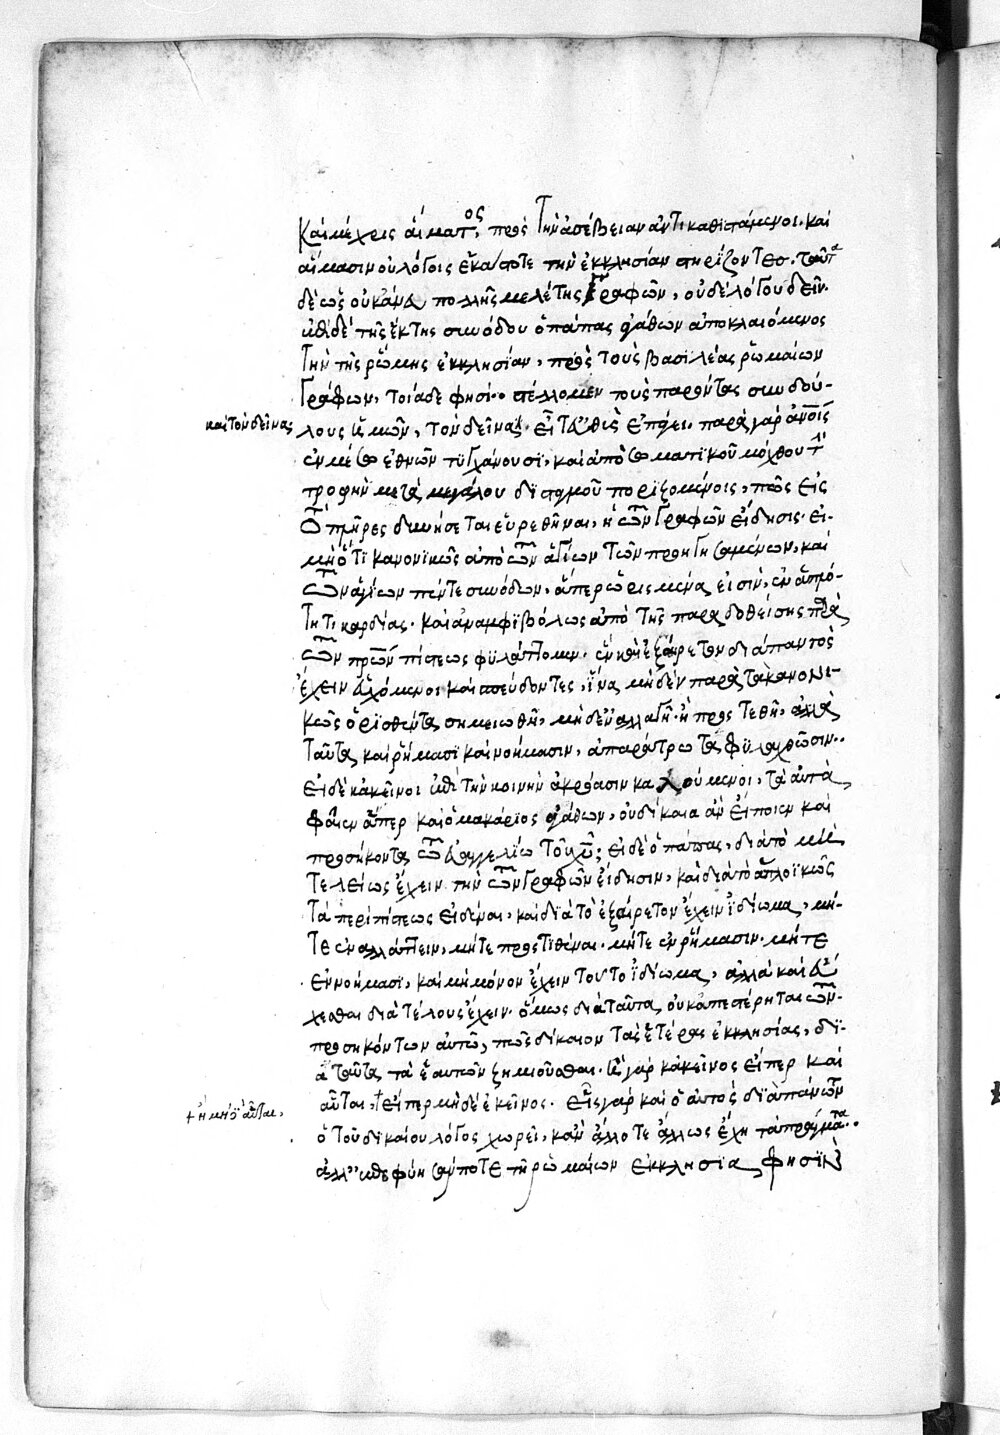 Καὶ μέχρις αἵματος, πρὸς τὴν ἀσέβειαν ἀντικαθιστάμενοι. καὶ
αἵμασιν οὐ λόγοις ἑκάστοτε τὴν ἐκκλησίαν στηρίζοντες. ταῦτα
δὲ ὡς οὐκ ἂν πολλῆς μελέτης γραφῶν, οὐδὲ λόγου δεῖν.
ἐπὶ δὲ τῆς ἕκτης συνόδου ὁ πάπας ἀγάθων ἀποκλαιόμενος
τὴν τῆς ῥώμης ἐκκλησίαν, πρὸς τοὺς βασιλέας ῥωμαίων
γράφων, τοιάδε φησί. στέλλομεν τοὺς παρόντας συνδού-
λους ἡμῶν, τὸν δεῖνα. εἶτ' αὖθις ἐπάγει. παρὰ γὰρ ἀνοις
καὶ τὸν δεῖνας
ἐν μέσω ἐθνῶν τυγχάνουσι, καὶ ἀπὸ σωματικοῦ μόχθου τὴν
τροφὴν μετὰ μεγάλου δισταγμοῦ ποριζομένοις, πῶς εἰς
τὸ πλῆρες δυνήσεται εὑρεθῆναι, ἡ τῶν γραφῶν εἴδησις. εἰ-
μὴ ὅτι κανονικῶς ἀπὸ τῶν ἁγίων τῶν προηγησαμένων, καὶ
τῶν ἁγίων πέντε συνόδων, ἅπερ ὡρισμένα εἰσὶν, ἐν ἁπλό-
τητι καρδίας. καὶ ἀναμφιβόλως ἀπὸ τῆς παραδοθείσης παρὰ
τῶν πρων πίστεως φυλάττομεν. ἓν καὶ ἐξαίρετον διάπαντὸς
ἔχειν εὐχόμενοι καὶ σπεύδοντες, ἵνα μηδὲν παρὰ τὰ κανονι-
κῶς ὁρισθέντα σημειωθῆ, μηδ' ἐναλλαγῆ. ἢ προστεθῆ, ἀλλὰ
ταῦτα καὶ ῥήμασι καὶ νοήμασιν, ἀπαράτρωτα φυλαχθῶσιν.
εἰ δὲ κἀκεῖνοι ἐπὶ τὴν κοινὴν ἀκρόασιν καλούμενοι, τὰ αὐτὰ
φαῖεν ἅπερ καὶ ὁ μακάριος ἀγάθων, οὐ δίκαια ἂν εἴποιεν καὶ
προσήκοντα τῶ εὐαγγελίω τοῦ χυ; εἰ δὲ ὁ πάπας, διὰ τὸ μὴ
τελείως ἔχειν τὴν τῶν γραφῶν εἴδησιν, καὶ διὰ τὸ ἁπλοϊκῶς
τὰ περὶ πίστεως εἰδέναι, καὶ διὰ τὸ ἐξαίρετον ἔχειν ἰδίωμα, μή-
τε ἐναλλάττειν, μήτε προστιθέναι. μήτε ἐν ῥήμασιν. μήτε
ἐν νοήμασι, καὶ μὴ μόνον ἔχειν τοῦτο ἰδίωμα, ἀλλὰ καὶ εὔ-
χεσθαι διὰ τέλους ἔχειν. ὅμως διὰ ταῦτα οὐκ ἀπεστέρηται τῶν
προσηκόντων αὐτῶ, πῶς δίκαιον τὰς ἑτέρας ἐκκλησίας, δι-
ὰ ταῦτα τὰ ἑαυτῶν ζημιοῦσθαι. ἢ γὰρ κἀκεῖνος εἴπερ καὶ
αὗται, + εἴπερ μηδὲ ἐκεῖνος. εἷς γὰρ καὶ ὁ αὐτὸς διὰ πάντων
+ ἢ μηδ' αὗται,
ὁ τοῦ δικαίου λόγος χωρεῖ, κἂν ἄλλοτε ἄλλως ἔχη τὰ πράγματα.
ἀλλ' ἐκορυφώσατό ποτε τῆ ῥωμαίων ἐκκλησία, φησὶν